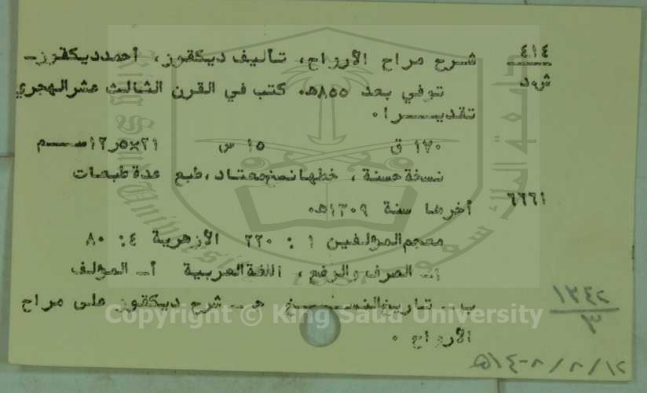 ٤١٤ شرح مراح الأرواح، تأليف ديكقوز، أحمدديكقوز–
ش٠د توفي بعد ٨٥٥ھ٠ كتب في القرن الثالث عشرالهجري
تقديـــــرا٠
١٧٠ ق ١٥ س ٢١×١٢٫٥ســـم
نسخة حسنة، خطهانسخمعتاد،طبع عدة طبعات
٦٦٦١ أخرها سنة ١٣٠٩ھ٠
معجم المؤلفين ١ : ٢٢٠ الأزهرية ٤: ٨٠
١ـ الصرف والرفع، اللغةالعربية أـ المؤلف
ب ـ تاريخ النســـخ جـ ـ شرح ديكقوز على مراح
الأرواح ٠
١٣٤٢
٣
Copyright © King Saud University